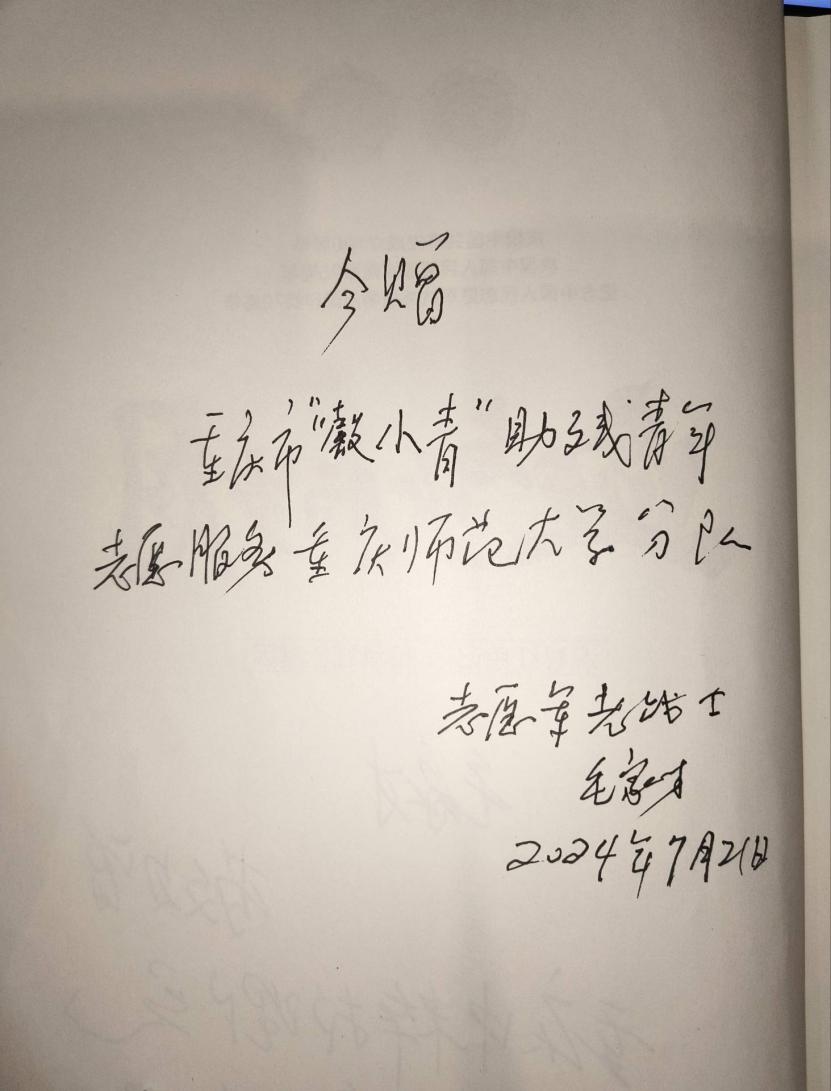 今赠
重庆市"小青"助残青年
志愿服务重庆师范大学分队
志愿军老战士
毛家
2024年7月21日